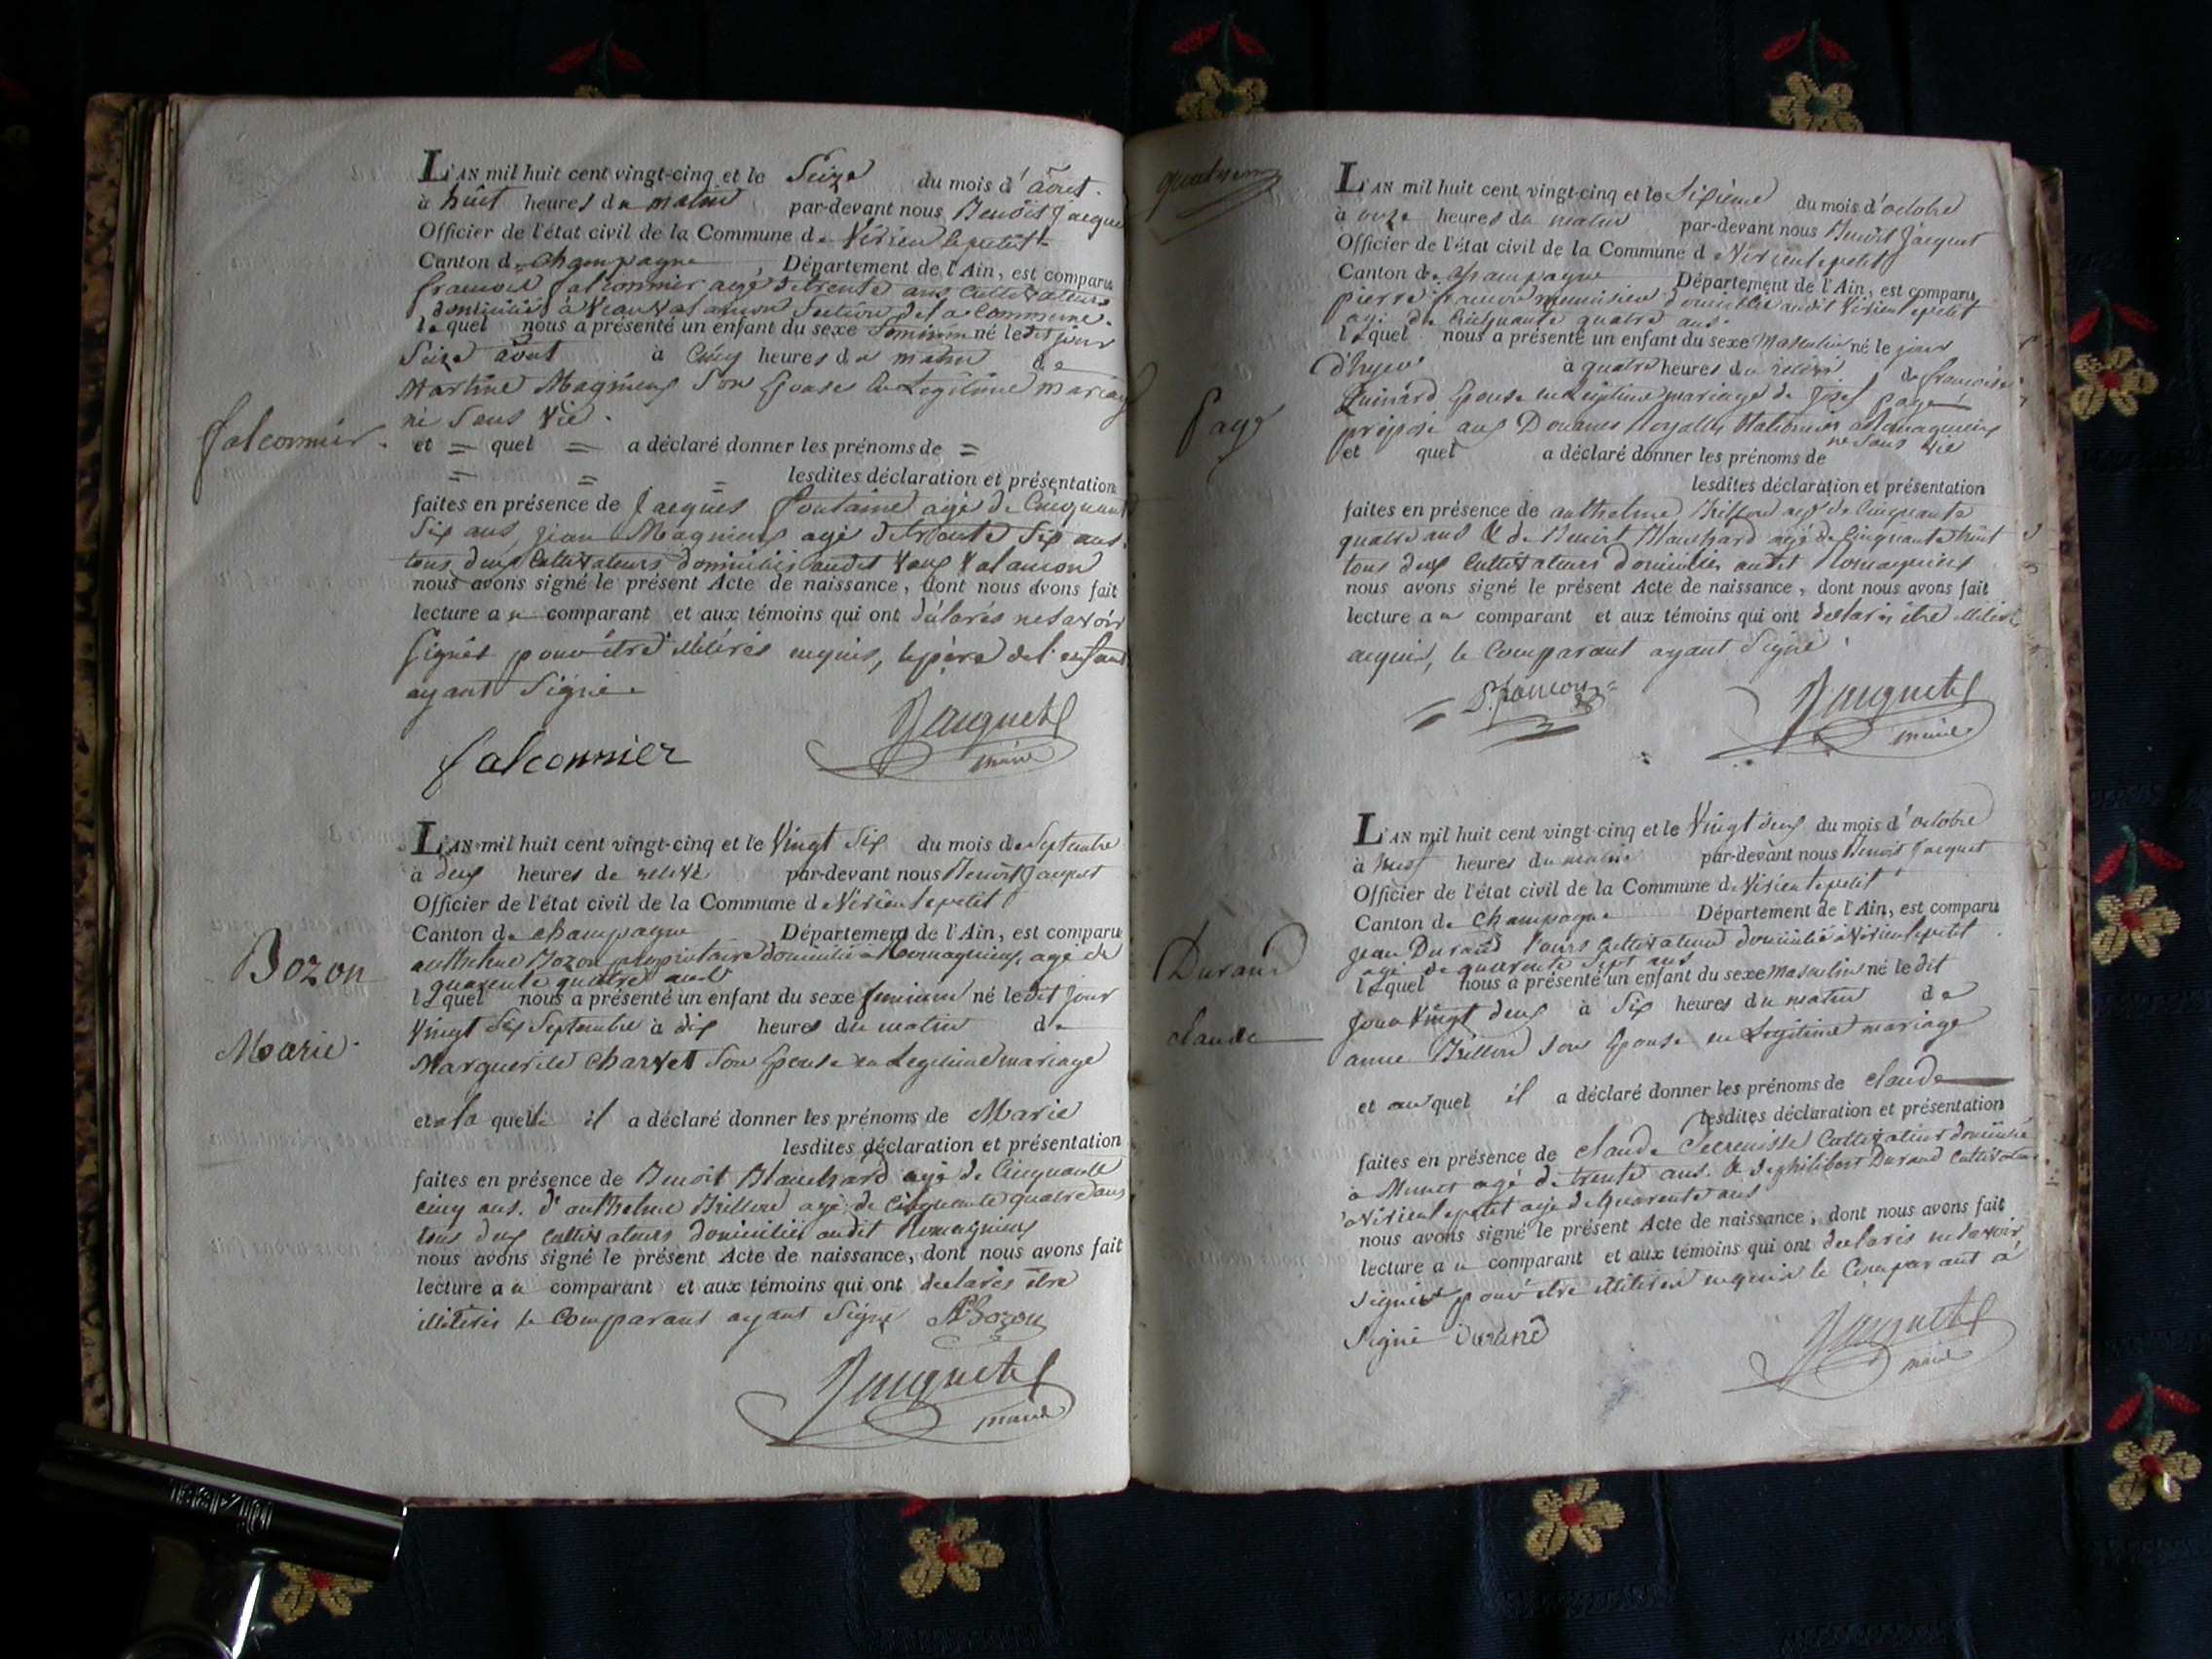 L'AN mil huit cent vingt-cinq et le Seize du mois d'août.
à huit heures du matin par-devant nous Benoît Jacquet
Officier de l'état civil de la Commune de Virieu le petit
Canton de Champagne, Département de l'Ain, est comparu
françois falconnier agé de trente ans Cultivateur
domicilié à Section de la Commune.
lequel nous a présenté un enfant du sexe feminin né le dit jour
Seize août à Cinq heures du matin de
Martine Magnieux Son Epouse en Légitime mariage
né Sans Vie.
falconnier.
et = quel = a déclaré donner les prénoms de =
= = = lesdites déclaration et présentation
faites en présence de Jacques fontaine agé de Cinquante
Six ans, jean Magnieux agé de trente Six ans.
tous deux Cultivateurs domiciliés audit
nous avons signé le présent Acte de naissance, dont nous avons fait
lecture au comparant et aux témoins qui ont déclarés ne savoir
Signer pour être illitérés enquis, le père de l'enfant
ayant Signé.
falconnier Jacquet
maire
L'AN mil huit cent vingt-cinq et le Vingt Six du mois de Septembre
à deux heures de relevé par-devant nous Benoit Jacquet
Officier de l'état civil de la Commune de Virieu le petit
Canton de champagne Département de l'Ain, est comparu
anthelme Bozon propriétaire domicilié à Romagnieux, agé de
quarente quatre ans
lequel nous a présenté un enfant du sexe feminin né le dit jour
Vingt Six Septembre à dix heures du matin de
Marguerite Charvet Son Epouse en Legitime mariage
Bozon
Marie.
et a la quelle il a déclaré donner les prénoms de Marie
lesdites déclaration et présentation
faites en présence de Benoit Blanchard agé de Cinquante
cinq ans. d'anthelme Brillon agé de Cinquante quatre ans
tous deux Cultivateurs domiciliés audit Romagnieux
nous avons signé le présent Acte de naissance, dont nous avons fait
lecture au comparant et aux témoins qui ont declarés être
illiterés le Comparant ayant Signé A. Bozon
Jacquet
maire
L'AN mil huit cent vingt-cinq et le Sixième du mois d'octobre
à onze heures du matin par-devant nous Benoit Jacquet
Officier de l'état civil de la Commune de Virieu le petit
Canton de Champagne Département de l'Ain, est comparu
pierre francon menuisier domicilié audit Virieu le petit
agé de Cinquante quatre ans.
lequel nous a présenté un enfant du sexe masculin né le jour
d'hyer à quatre heures du de françoise
Epouse en Légitime mariage de Josef Page
préposé aux Douanes Royalles à Romagnieux
né Sans Vie
Page
et quel a déclaré donner les prénoms de
lesdites déclaration et présentation
faites en présence de anthelme Brillon agé de Cinquante
quatre ans & de Benoit Blanchard agé de Cinquante huit
tous deux Cultivateurs domiciliés audit Romagnieux
nous avons signé le présent Acte de naissance, dont nous avons fait
lecture au comparant et aux témoins qui ont declarés être illiterés
enquis, le Comparant ayant Signé
P. francon Jacquet
maire
L'AN mil huit cent vingt-cinq et le Vingt deux du mois d'octobre
à heures du matin par-devant nous Benoit Jacquet
Officier de l'état civil de la Commune de Virieu le petit
Canton de Champagne Département de l'Ain, est comparu
Jean Durand Cultivateur domicilié à Virieu le petit
agé de quarente Sept ans
lequel nous a présenté un enfant du sexe masculin né le dit
Jour Vingt deux à Six heures du matin de
anne Brillon Son Epouse en Legitime mariage
Durand
claude
et au quel il a déclaré donner les prénoms de claude
lesdites déclaration et présentation
faites en présence de claude Cultivateur domicilié
à Munet agé de trente ans. & de philibert Durand Cultivateur
à Virieu le petit agé de Quarente ans
nous avons signé le présent Acte de naissance, dont nous avons fait
lecture au comparant et aux témoins qui ont declarés ne Savoir
Signer pour être illiterés enquis le Comparant a
Signé Durand
Jacquet
maire